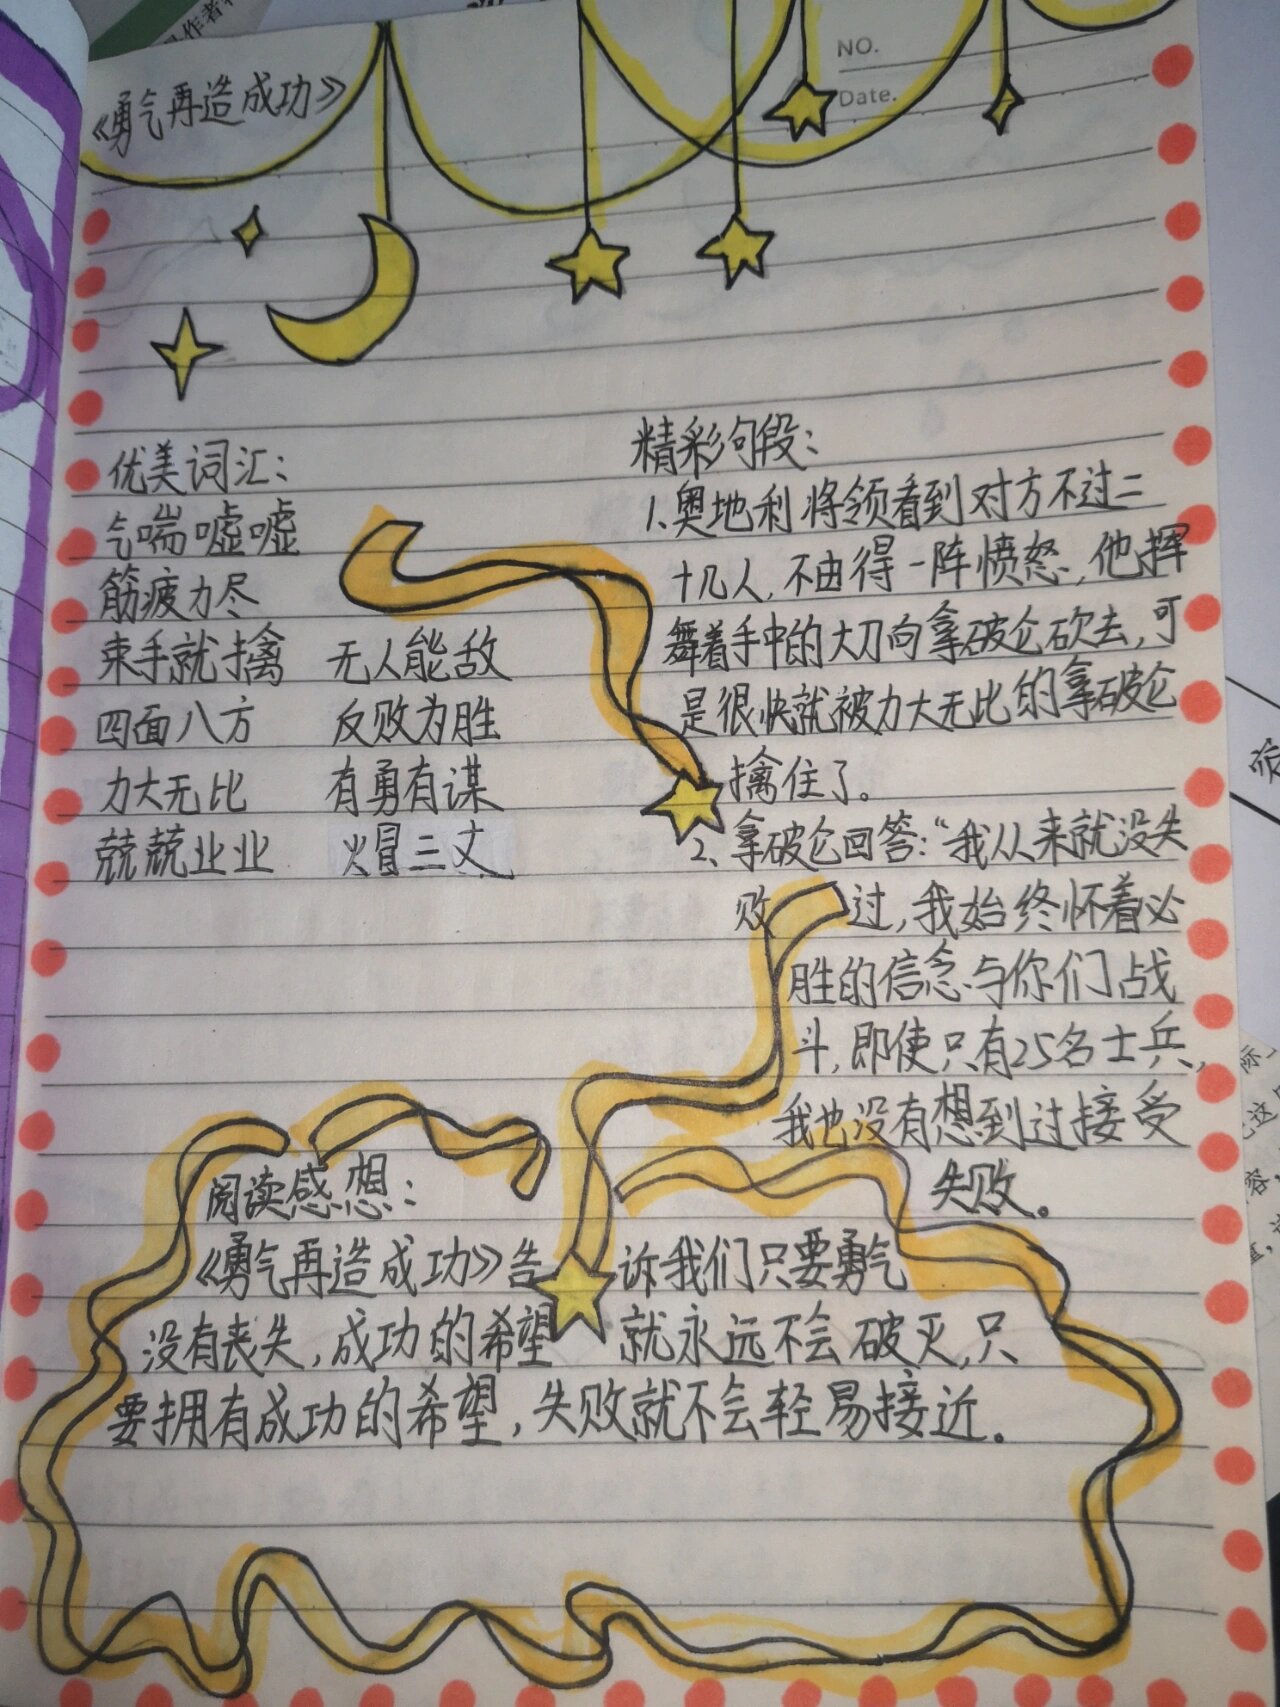 NO.
Date.
《勇气再造成功》
优美词汇：
气喘嘘嘘
筋疲力尽
束手就擒 无人能敌
四面八方 反败为胜
力大无比 有勇有谋
兢兢业业 火冒三丈
精彩句段：
1、奥地利将领看到对方不过二
十几人，不由得一阵愤怒，他挥
舞着手中的大刀向拿破仑砍去，可
是很快就被力大无比的拿破仑
擒住了。
2、拿破仑回答：“我从来就没失
败过，我始终怀着必
胜的信念与你们战
斗，即使只有25名士兵，
我也没有想到过接受
失败。
阅读感想：
《勇气再造成功》告诉我们只要勇气
没有丧失，成功的希望就永远不会破灭，只
要拥有成功的希望，失败就不会轻易接近。